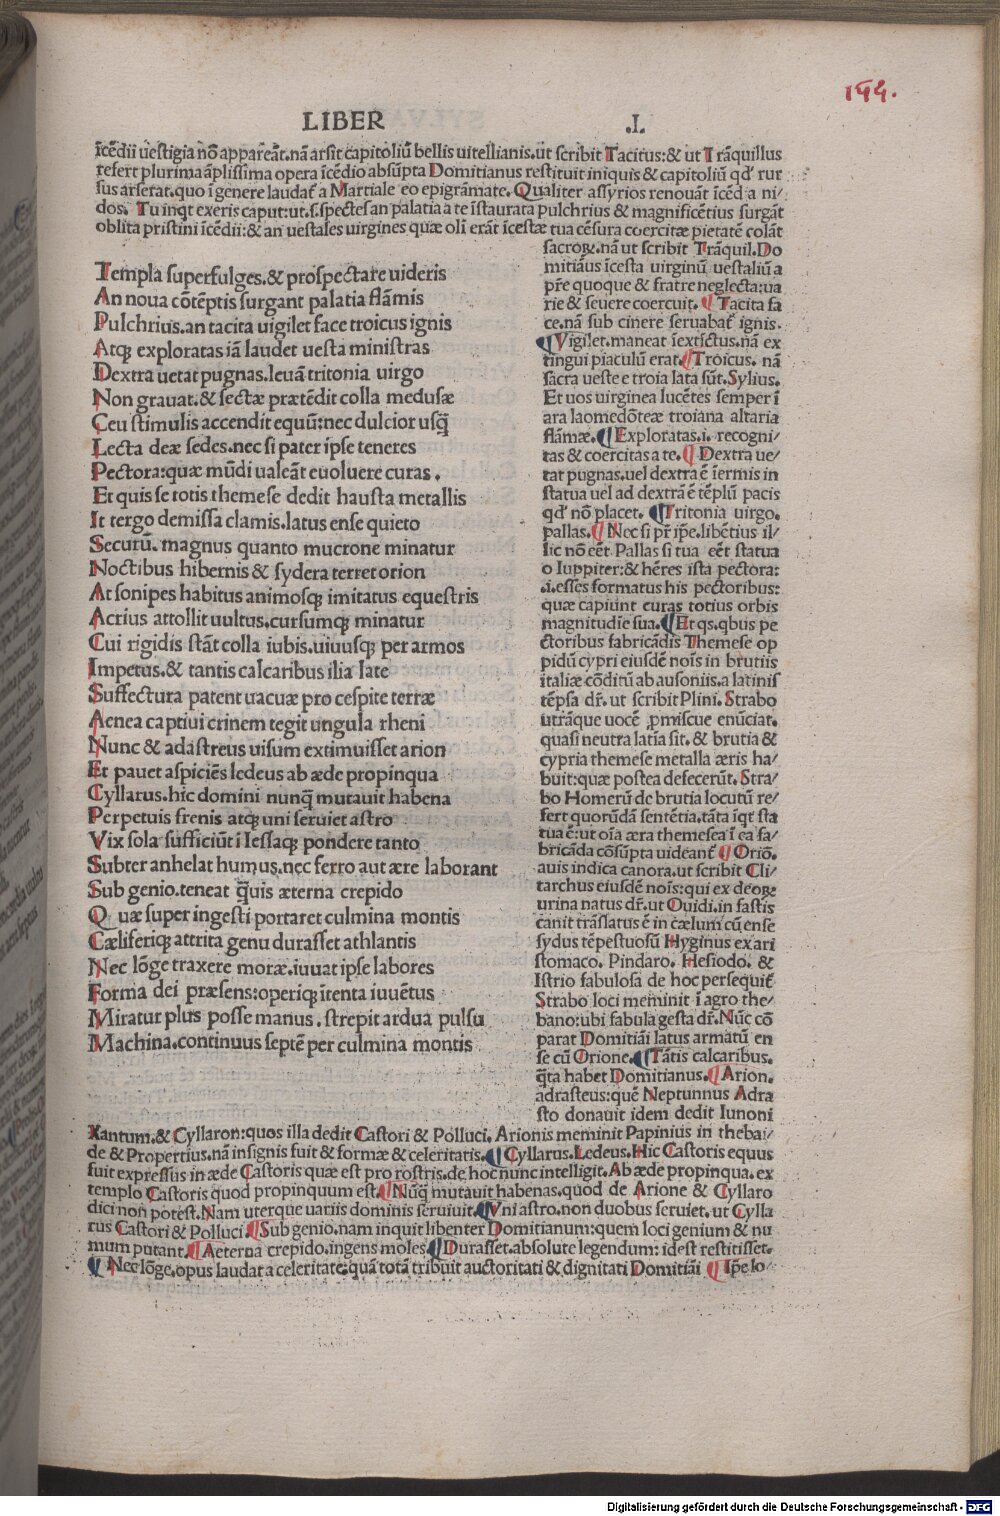 144.
LIBER .I.
īcēdii uestigia nō appareāt. nā arsit capitoliū bellis uitellianis. ut scribit Tacitus: & ut Trāquillus
refert plurima āplissima opera īcēdio absūpta Domitianus restituit iniquis & capitoliū qd' rur
sus arserat. quo ī genere laudat̄ a Martiale eo epigrāmate. Qualiter assyrios renouāt īcēd a ni/
dos. Tu inq̇t exeris caput: ut .s. spectes an palatia a te īstaurata pulchrius & magnificētius surgāt
oblita pristini īcēdii: & an uestales uirgines quæ oli erāt īcestæ tua cēsura coercitæ pietatē colāt
Templa superfulges. & prospectare uideris
An noua cōtēptis surgant palatia flāmis
Pulchrius. an tacita uigilet face troicus ignis
Atq; exploratas iā laudet uesta ministras
Dextra uetat pugnas. leuā tritonia uirgo
Non grauat. & sectæ prætēdit colla medusæ
Ceu stimulis accendit equū: nec dulcior usq̄
Lecta deæ sedes. nec si pater ipse teneres
Pectora: quæ mūdi ualeāt euoluere curas.
Et quis se totis themese dedit hausta metallis
It tergo demissa clamis. latus ense quieto
Securū. magnus quanto mucrone minatur
Noctibus hibernis & sydera terret orion
At sonipes habitus animosq; imitatus equestris
Acrius attollit uultus. cursumq; minatur
Cui rigidis stāt colla iubis. uiuusq; per armos
Impetus. & tantis calcaribus ilia late
Suffectura patent uacuæ pro cespite terræ
Aenea captiui crinem tegit ungula rheni
Nunc & adastreus uisum extimuisset arion
Et pauet aspiciēs ledeus ab æde propinqua
Cyllarus. hic domini nunq̄ mutauit habena
Perpetuis frenis atq; uni seruiet astro
Vix sola sufficiūt ī Iessaq; pondere tanto
Subter anhelat humus. nec ferro aut ære laborant
Sub genio. teneat q̄uis æterna crepido
Quæ super ingesti portaret culmina montis
Cæliferiq; attrita genu durasset athlantis
Nec lōge traxere moræ. iuuat ipse labores
Forma dei præsens: operiq; ītenta iuuētus
Miratur plus posse manus. strepit ardua pulsu
Machina. continuus septē per culmina montis
sacroꝝ. nā ut scribit Trāquil. Do
mitiāus īcesta uirginū uestaliū a
pr̄e quoque & fratre neglecta: ua
rie & seuere coercuit. ¶ Tacita fa
ce. nā sub cinere seruabat̄ ignis.
¶ Vigilet. maneat īextīctus. nā ex
tingui piaculū erat. ¶ Troicus. nā
sacra ueste e troia lata sūt. Sylius.
Et uos uirginea lucētes semper ī
ara laomedōteæ troiana altaria
flāmæ. ¶ Exploratas. i. recogni/
tas & coercitas a te. ¶ Dextra ue/
tat pugnas. uel dextra ē īermis in
statua uel ad dextrā ē tēplū pacis
qd' nō placet. ¶ Tritonia uirgo.
pallas. ¶ Nec si pr̄ ip̄e. libētius il/
lic nō eēt Pallas si tua eēt statua
o Iuppiter: & hēres ista pectora:
.i. esses formatus his pectoribus:
quæ capiunt curas totius orbis
magnitudīe sua. ¶ Et qs. qbus pe
ctoribus fabricādis Themese op
pidū cypri eiusdē nōis in brutiis
ītaliæ cōditū ab ausoniis. a latinis
tēpsa dr̄. ut scribit Plini. Strabo
utrāque uocē ꝓmiscue enūciat.
quasi neutra latia sit. & brutia &
cypria themese metalla æris ha/
buit: quæ postea desecerūt. Stra/
bo Homerū de brutia locutū re/
fert quorūdā sentētia. tāta īq̇t sta
tua ē: ut oīa æra themesea ī ea fa/
bricāda cōsūpta uideant̄ ¶ Oriō.
auis indica canora. ut scribit Cli/
tarchus eiusdē nōis: qui ex deoꝝ
urina natus dr̄. ut Ouidi. in fastis
canit trāslatus ē in cælum cū ense
sydus tēpestuosū Hyginus ex ari
stomaco. Pindaro. Hesiodo. &
Istrio fabulosa de hoc persequit̄
Strabo loci meminit ī agro the/
bano: ubi fabula gesta dr̄. Nūc cō
parat Domitiāi latus armatū en
se cū Orione. ¶ Tātis calcaribus.
q̄ta habet Domitianus. ¶ Arion.
adrasteus: quē Neptunnus Adra
sto donauit idem dedit Iunoni
Xantum. & Cyllaron: quos illa dedit Castori & Polluci. Arionis meminit Papinius in thebai/
de & Propertius. nā insignis fuit & formæ & celeritatis. ¶ Cyllarus. Ledeus. Hic Castoris equus
fuit expressus in æde Castoris quæ est pro rostris. de hoc nunc intelligit. Ab æde propinqua. ex
templo Castoris quod propinquum est. ¶ Nūq̄ mutauit habenas. quod de Arione & Cyllaro
dici non potest. Nam uterque uariis dominis seruiuit. ¶ Vni astro. non duobus seruiet. ut Cylla
rus Castori & Polluci ¶ Sub genio. nam inquit libenter Domitianum: quem loci genium & nu
mum putant. ¶ Aeterna crepido. ingens moles ¶ Durasset. absolute legendum: id est restitisset.
¶ Nec lōge. opus laudat a celeritate: quā totā tribuit auctoritati & dignitati Domitiāi ¶ Ip̄e lo/
Digitalisierung gefördert durch die Deutsche Forschungsgemeinschaft - DFG